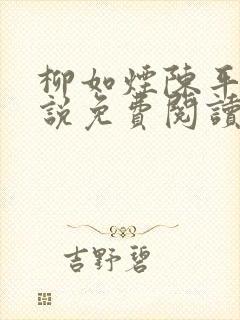 柳如煙陳平
說免費閱讀
吉野碧